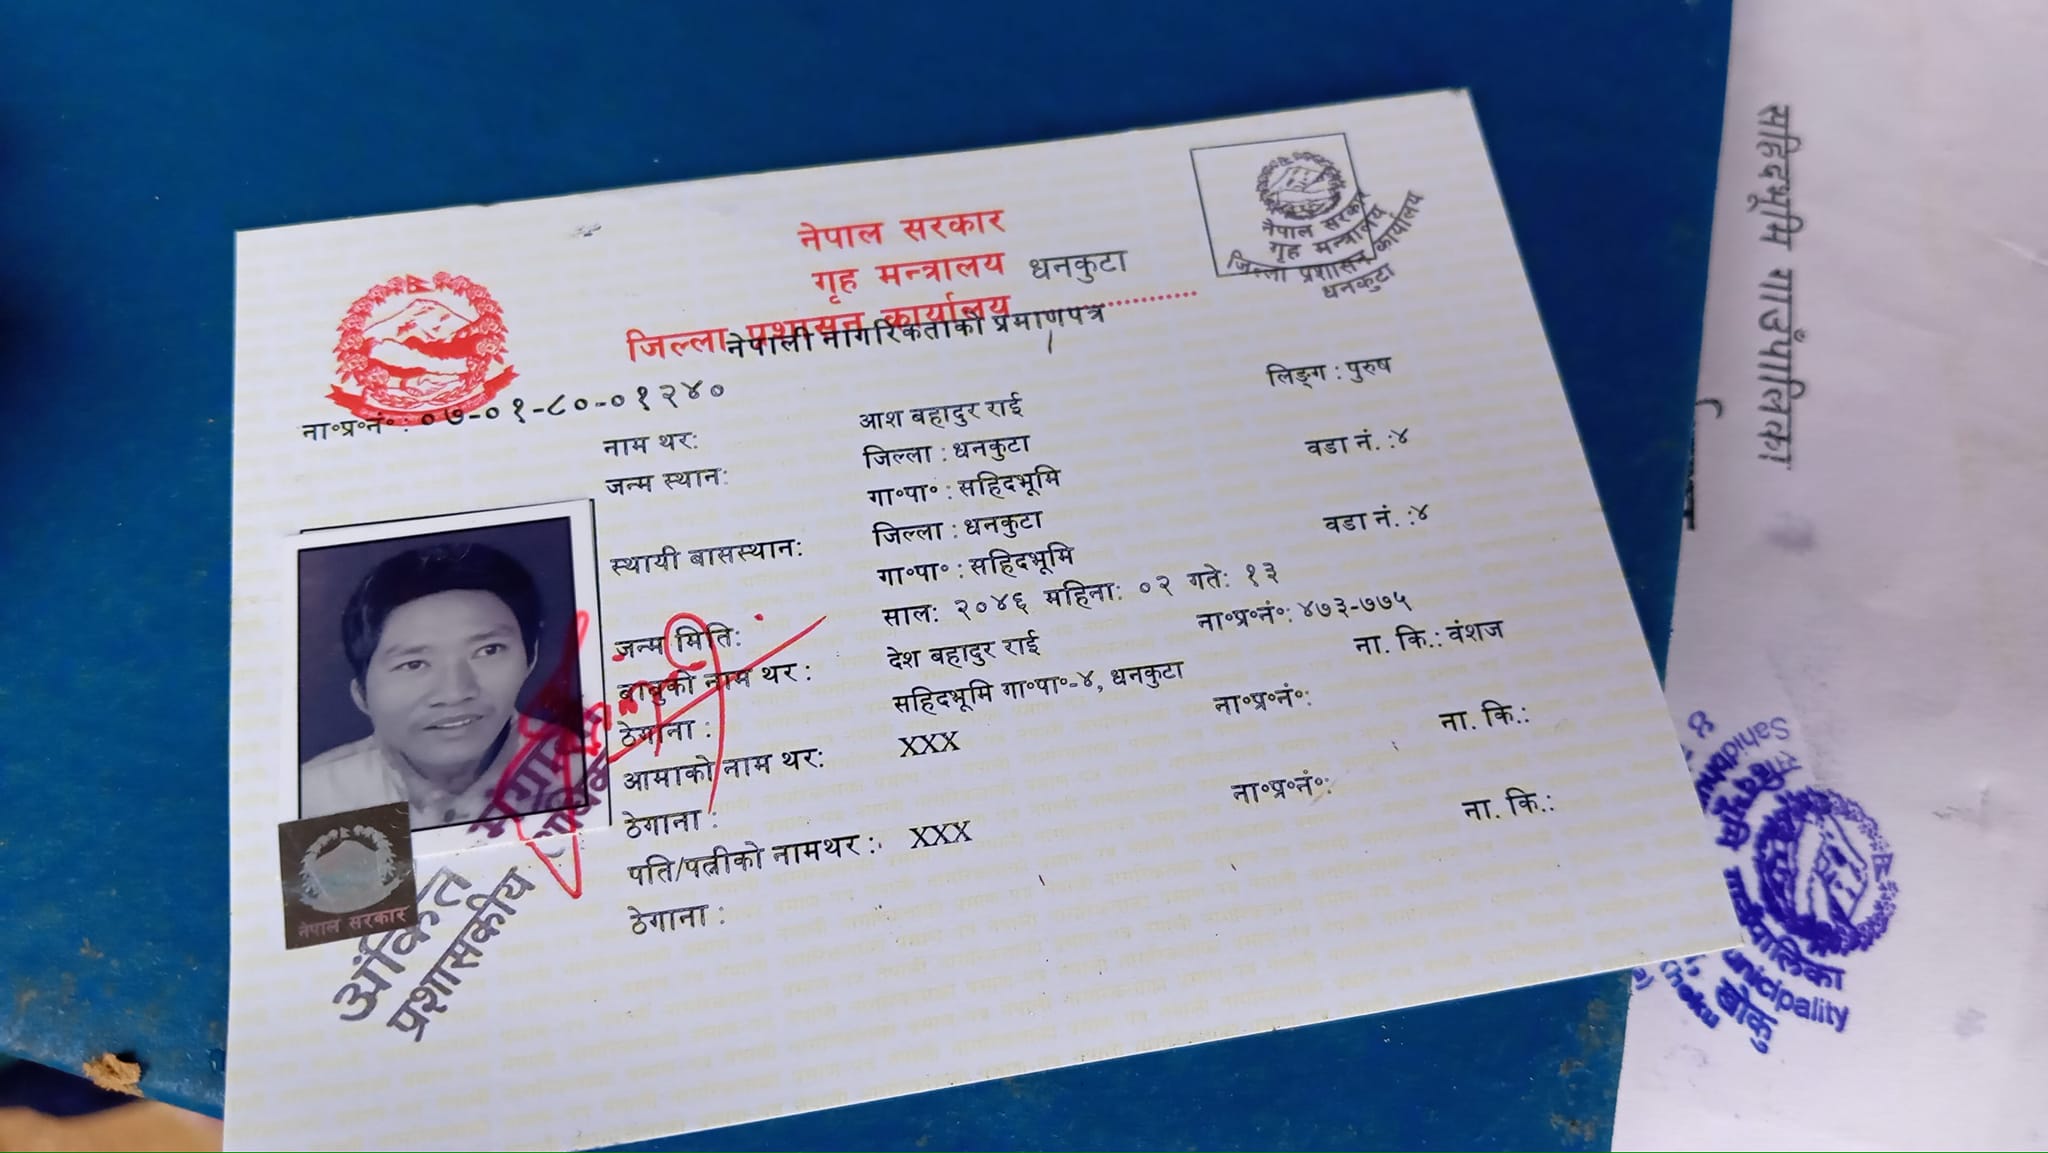 नेपाल सरकार
गृह मन्त्रालय
जिल्ला प्रशासन कार्यालय धनकुटा
नेपाली नागरिकताको प्रमाणपत्र
नेपाल सरकार
गृह मन्त्रालय
जिल्ला प्रशासन कार्यालय
धनकुटा
ना॰प्र॰नं॰ : ०७-०१-८०-०१२४०
लिङ्ग : पुरुष
नाम थर: आश बहादुर राई
जन्म स्थान: जिल्ला : धनकुटा
गा॰पा॰ : सहिदभूमि वडा नं. :४
स्थायी बासस्थान: जिल्ला : धनकुटा
गा॰पा॰ : सहिदभूमि वडा नं. :४
जन्म मिति: साल: २०४६ महिना: ०२ गते: १३
बाबुको नाम थर : देश बहादुर राई ना॰प्र॰नं॰: ४७३-७७५
ठेगाना : सहिदभूमि गा॰पा॰-४, धनकुटा ना. कि.: वंशज
आमाको नाम थर: XXX ना॰प्र॰नं॰:
ठेगाना : ना. कि.:
पति/पत्नीको नामथर : XXX ना॰प्र॰नं॰:
ठेगाना : ना. कि.:
नेपाल सरकार
अंकित
प्रशासकीय
सहिदभूमि गाउँपालिका